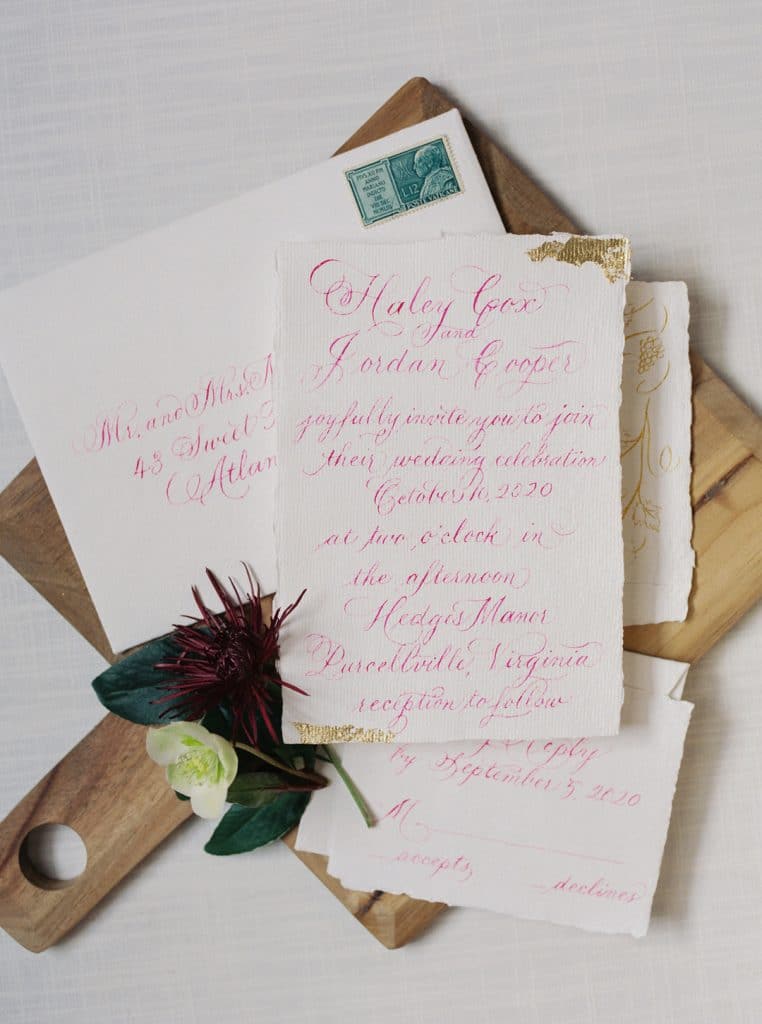 L.12
POSTE VATICANE
PIVS.XII P.M.
ANNO
MARIANO
INDICTO
DIE
VIII DEC.
Haley Cox
and
Jordan Cooper
joyfully invite you to join
their wedding celebration
October 10, 2020
at two o'clock in
the afternoon
Hedges Manor
Purcellville, Virginia
reception to follow
Mr. and Mrs.
43 Sweet
Atlan
Reply
by September 5, 2020
M
accepts
declines